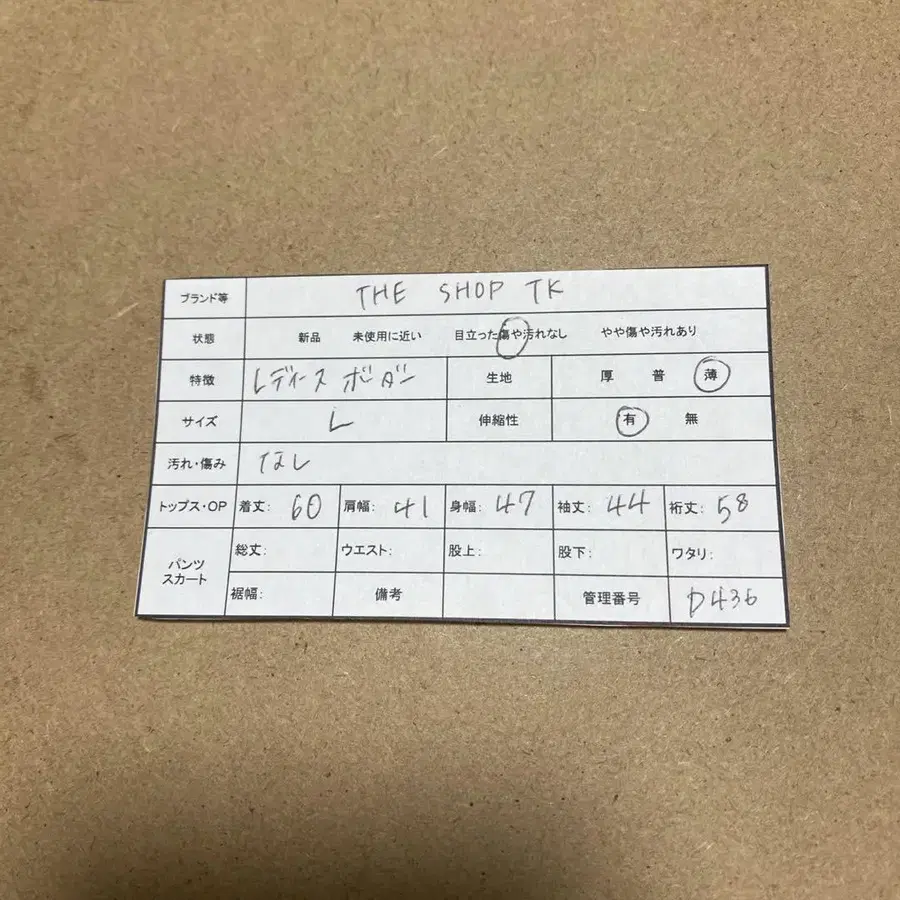 ブランド等 THE SHOP TK
状態 新品 未使用に近い 目立った傷や汚れなし やや傷や汚れあり
特徴 レディース ボーダー 生地 厚 普 薄
サイズ L 伸縮性 有 無
汚れ・傷み なし
トップス・OP 着丈: 60 肩幅: 41 身幅: 47 袖丈: 44 裄丈: 58
パンツ スカート 総丈: ウエスト: 股上: 股下: ワタリ:
裾幅: 備考 管理番号 D436